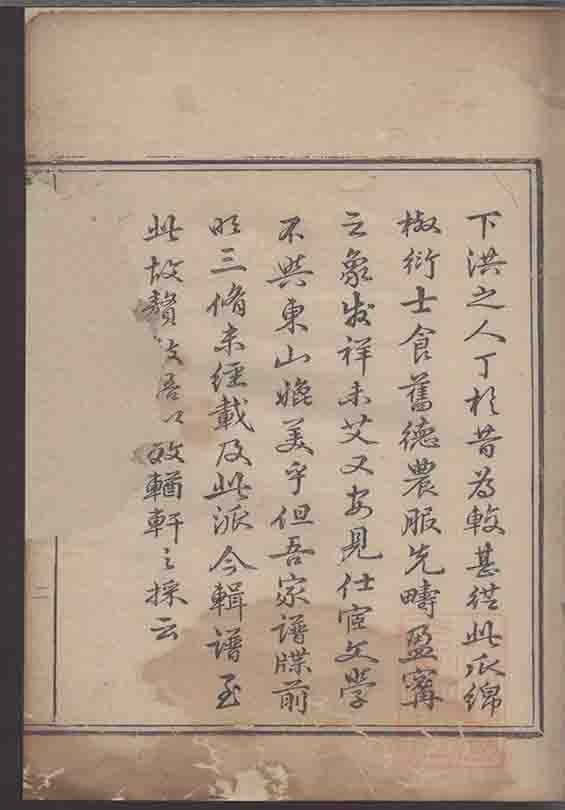 下洪之人丁於昔為較甚從此瓜綿
椒衍士食舊德農服先疇盈寧
之象发祥未艾又安見仕宦文學
不與東山媲美乎但吾家譜牒前
明三脩未經載及此派今輯譜至
此故贅 語以敂輶軒之採云
二